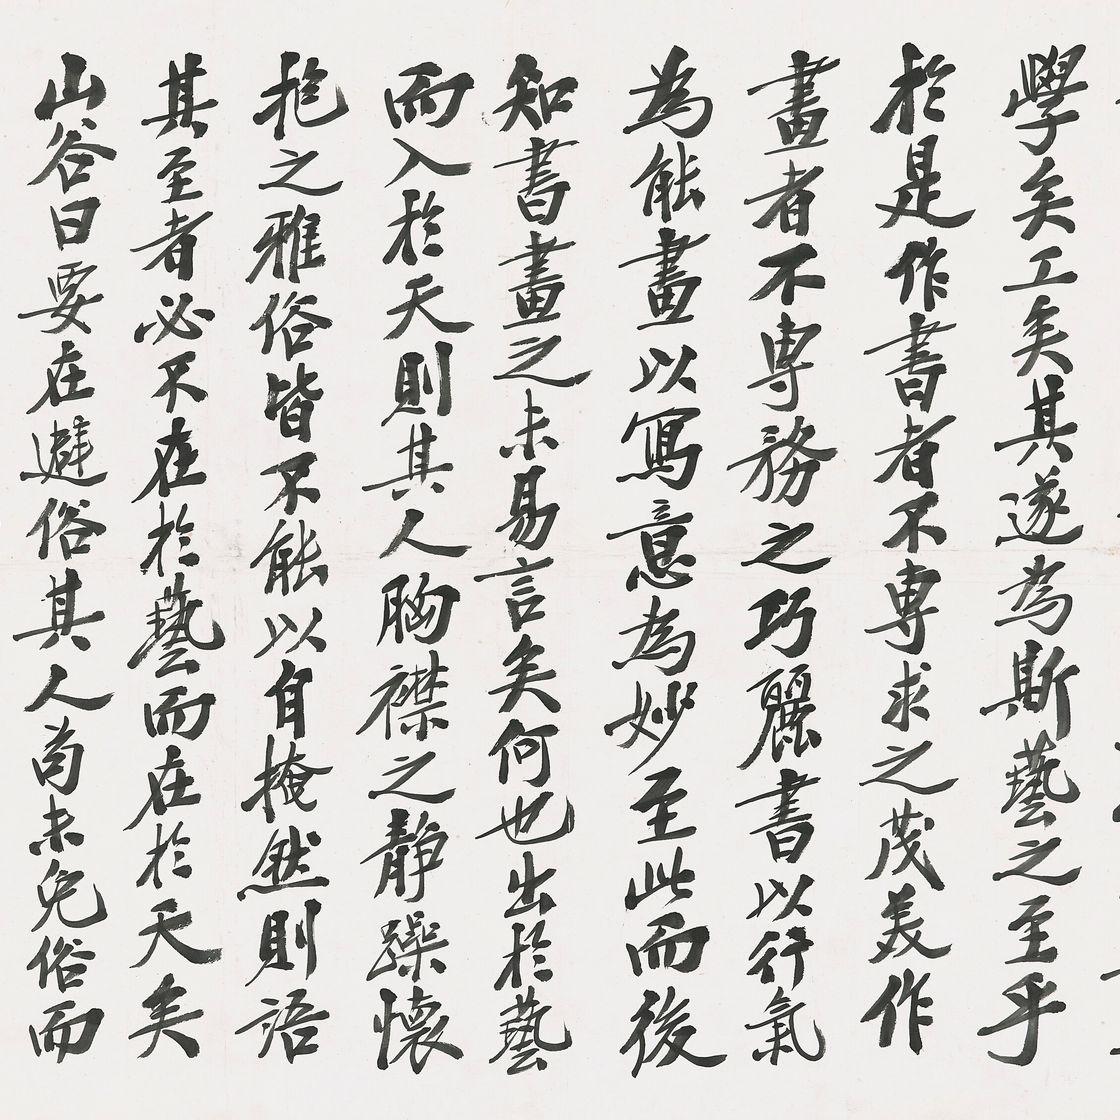 學矣工矣其遂為斯藝之至乎
於是作書者不専求之茂美作
畫者不専務之巧麗書以行氣
為能畫以寫意為妙至此而後
知書畫之未易言矣何也出於藝
而入於天則其人胸襟之静躁懷
抱之雅俗皆不能以自掩然則語
其至者必不在於藝而在於天矣
山谷曰要在避俗其人苟未免俗而